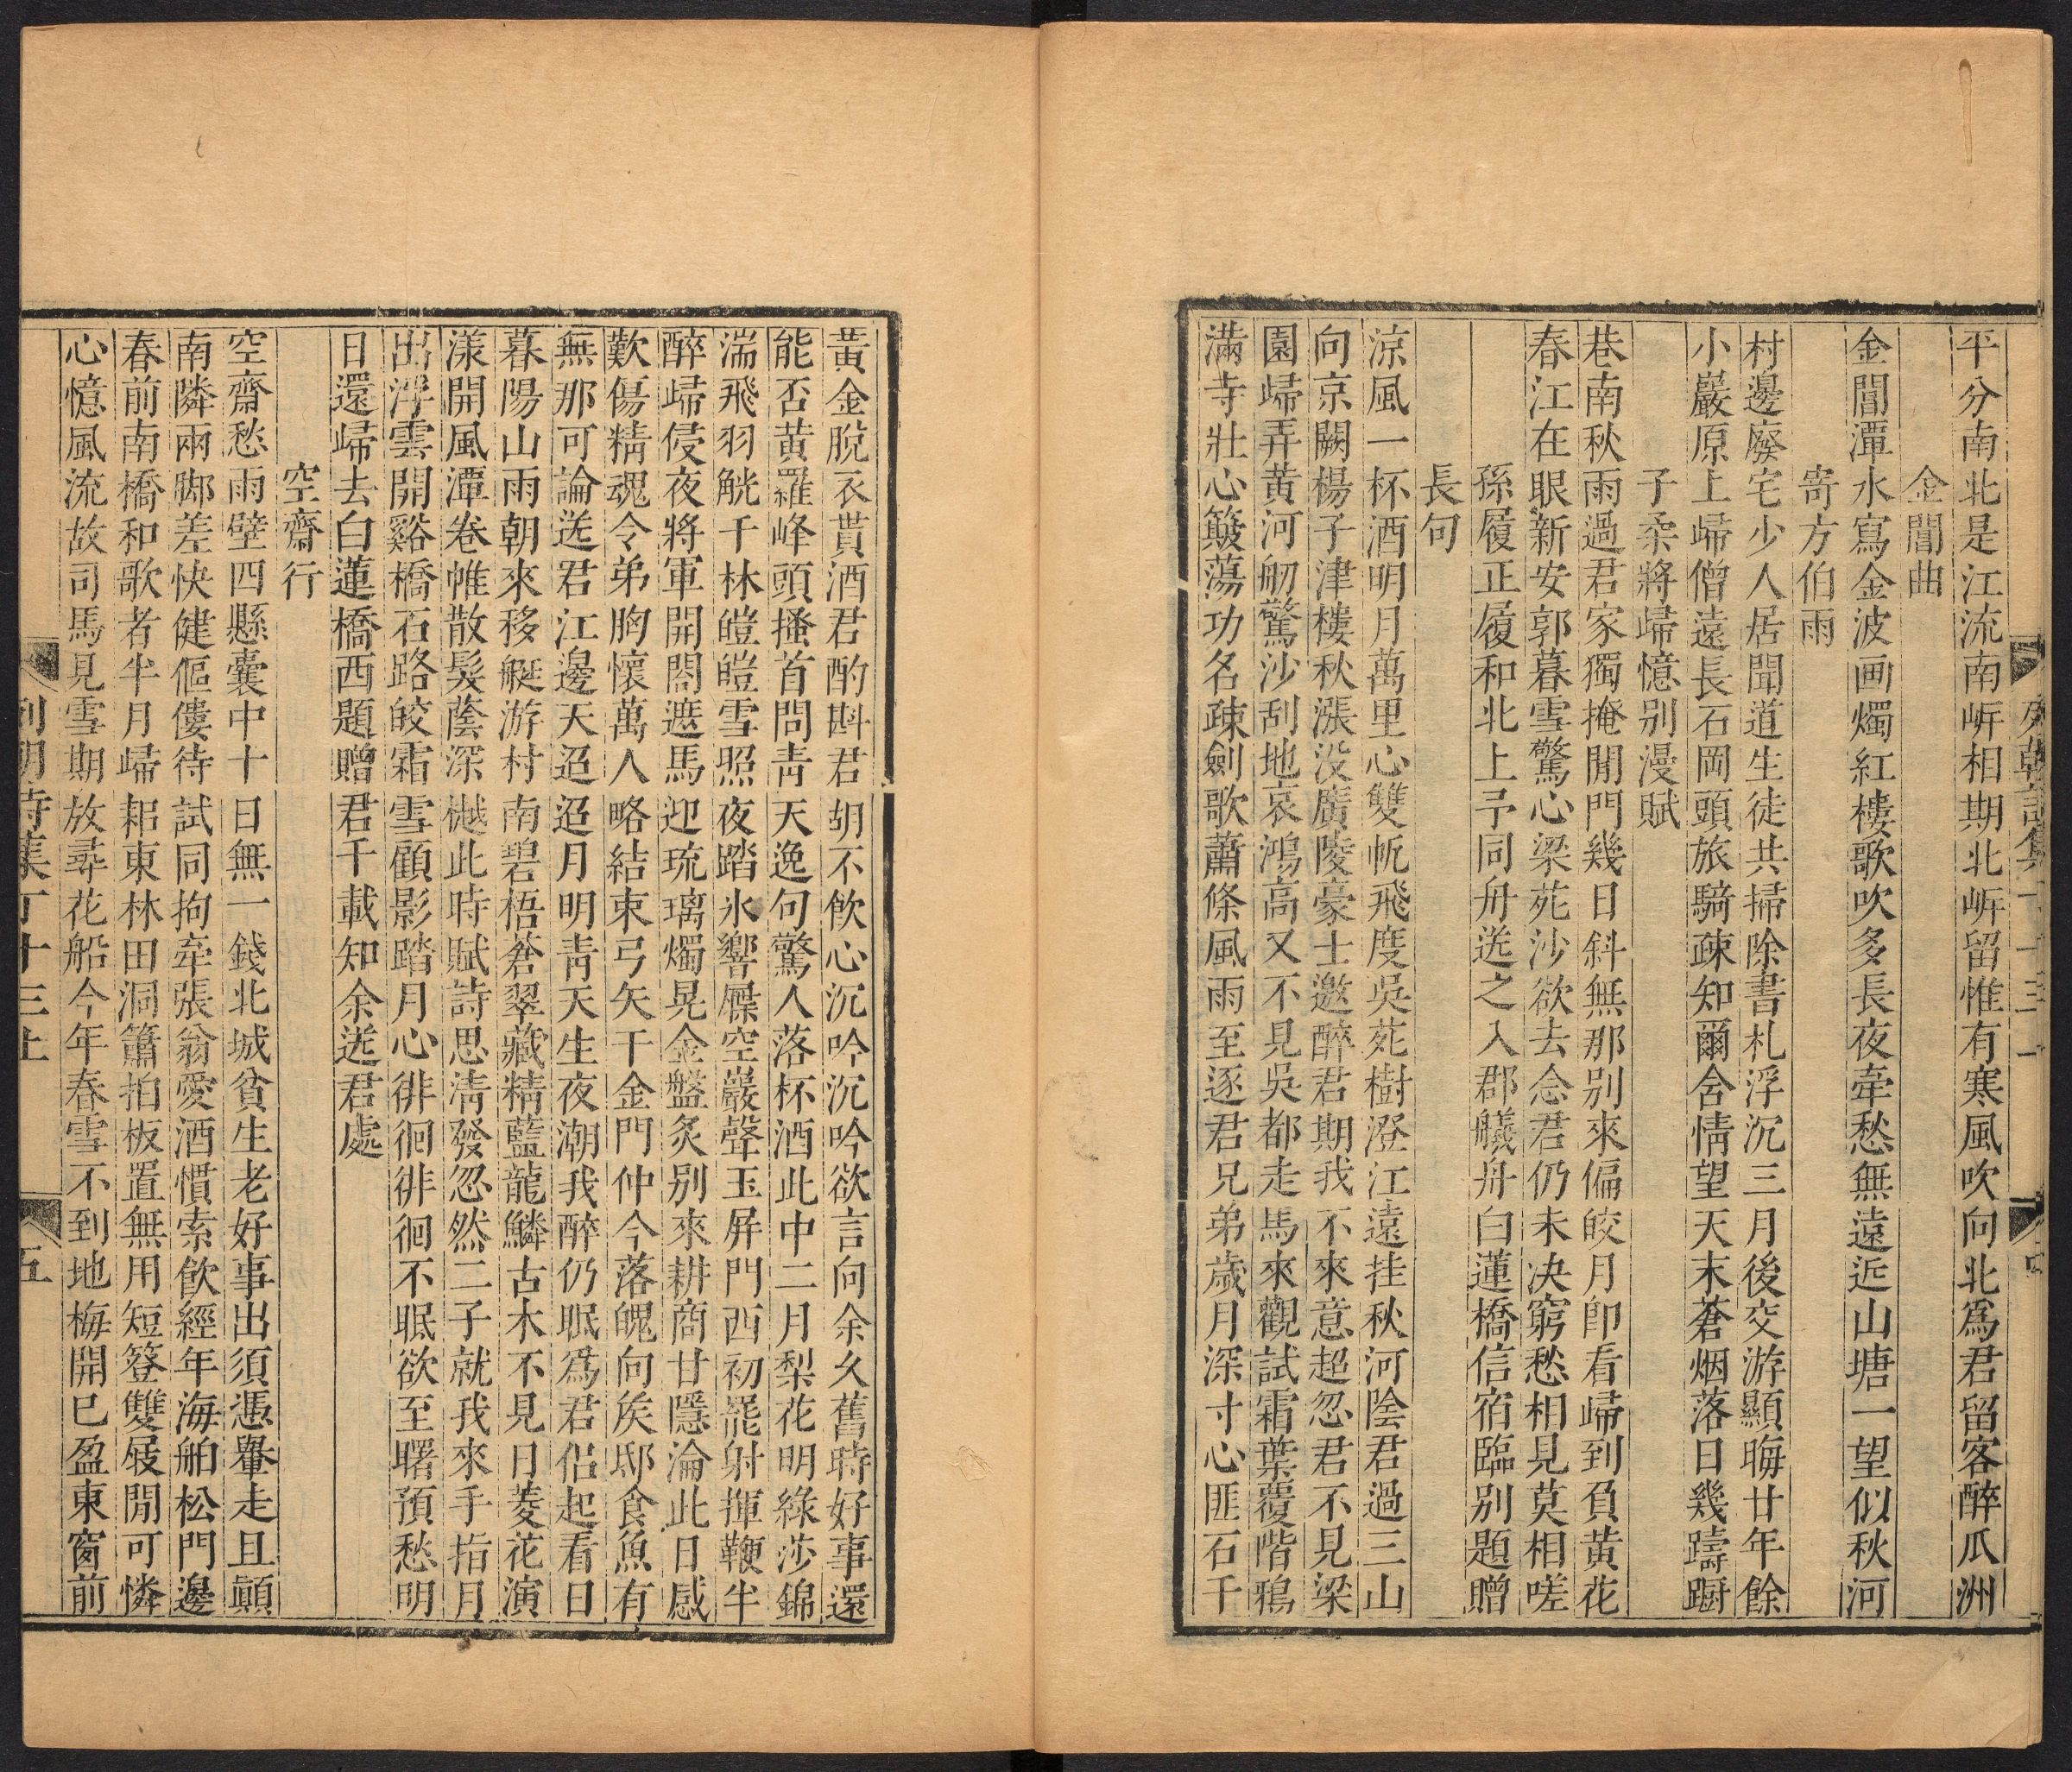 平分南北是江流南㟁相期北㟁留惟有寒風吹向北爲君留客醉瓜洲
金閶曲
金閶潭水寫金波画燭紅樓歌吹多長夜牽愁無遠近山塘一望似秋河
寄方伯雨
村邊廢宅少人居聞道生徒共掃除書札浮沉三月後交游顯晦廿年餘
小巖原上歸僧遠長石岡頭旅騎疎知爾舍情望天末蒼烟落日幾躊躕
子柔將歸憶别漫賦
巷南秋雨過君家獨掩閒門幾日斜無那别來偏皎月卽看歸到負黄花
春江在眼新安郭暮雪驚心梁苑沙欲去念君仍未決窮愁相見莫相嗟
孫履正履和北上予同舟送之入郡艤舟白蓮橋信宿臨别題贈
長句
凉風一杯酒明月萬里心雙帆飛度吳苑樹澄江遠挂秋河陰君過三山
向京闕楊子津樓秋漲没廣陵豪士邀醉君期我不來意超忽君不見梁
園歸弄黄河舠驚沙刮地哀鴻高又不見吳都走馬來觀試霜葉覆階鴉
滿寺壯心簸蕩功名疎劍歌蕭條風雨至逐君兄弟歲月深寸心匪石千
黄金脫衣貰酒君酌斟君胡不飮心沉吟沉吟欲言向余久舊時好事還
能否黄羅峰頭搔首問青天逸句驚人落杯酒此中二月梨花明綠莎錦
湍飛羽觥千林皚皚雪照夜踏氷響屧空巖聲玉屛門西初罷射揮鞭半
醉歸侵夜將軍開閤遮馬迎琉璃燭晃金盤炙别來耕商甘隱淪此日感
歎傷精魂令弟胸懷萬人略結束弓矢干金門仲今落魄向侯邸食魚有
無那可論送君江邊天迢迢月明青天生夜潮我醉仍眠爲君侣起看日
暮陽山雨朝來移艇游村南碧梧蒼翠藏精藍龍鱗古木不見日菱花演
漾開風潭卷帷散髮蔭深樾此時賦詩思清發忽然二子就我來手指月
出浮雲開谿橋石路皎霜雪顧影踏月心徘徊徘徊不眠欲至曙預愁明
日還歸去白蓮橋西題贈君千載知余送君處
空齋行
空齋愁雨壁四懸囊中十日無一錢北城貧生老好事出須憑轝走且顚
南隣兩脚差快健傴僂待試同拘牽張翁愛酒慣索飮經年海舶松門邊
春前南橋和歌者半月歸耜東林田洞簫拍板置無用短簦雙屐閒可憐
心憶風流故司馬見雪期放尋花船今年春雪不到地梅開已盈東窗前
列朝詩集丁十三上
五